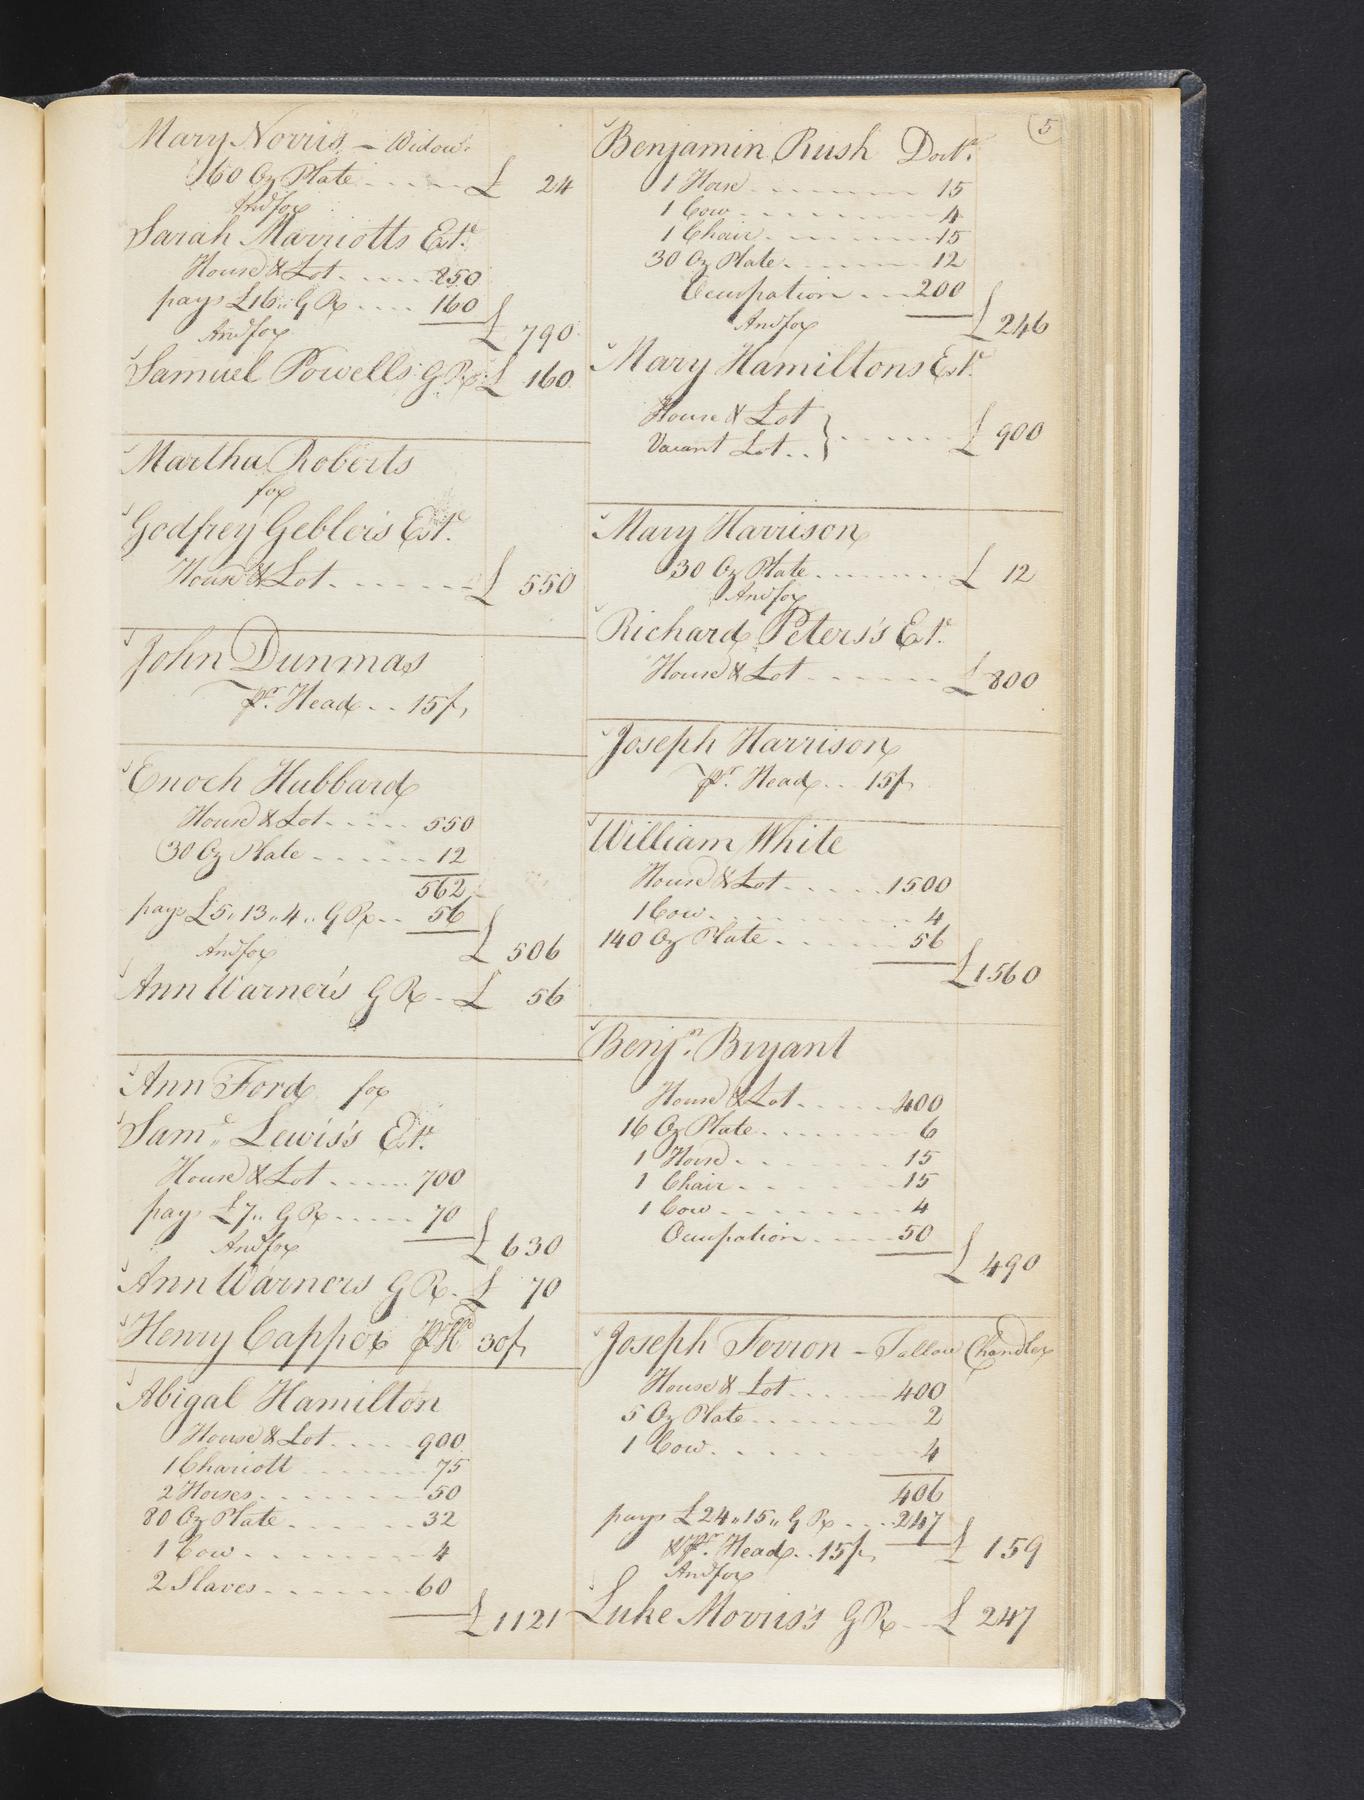 5
Mary Norris – Widow
60 Oz Plate £ 24
And for
Sarah Marriotts Estr.
House & Lot 950
pays £16 „ G R 160
£ 790
And for
Samuel Powells G R £ 160
Martha Roberts
for
Godfrey Gebler's Estr.
House & Lot £ 550
John Dunmas
Pr. Head 15/
Enoch Hubbard
House & Lot 550
30 Oz Plate 12
562
pays £5 „ 13 „ 4 „ G R 56
£ 506
And for
Ann Warner's G R £ 56
Ann Ford for
Saml. Lewis's Estr.
House & Lot 700
pays £7 „ G R 70
£ 630
And for
Ann Warners G R £ 70
Henry Capper Pr Hd 30/
Abigal Hamilton
House & Lot 900
1 Chariott 75
2 Horses 50
80 Oz Plate 32
1 Cow 4
2 Slaves 60
£ 1121
Benjamin Rush Doctr.
1 Horse 15
1 Cow 4
1 Chair 15
30 Oz Plate 12
Occupation 200
£ 246
And for
Mary Hamiltons Estr.
House & Lot
Vacant Lot } £ 900
Mary Harrison
30 Oz Plate £ 12
And for
Richard Peters's Estr.
House & Lot £ 800
Joseph Harrison
Pr. Head 15/
William White
House & Lot 1500
1 Cow 4
140 Oz Plate 56
£ 1560
Benjn. Bryant
House & Lot 400
16 Oz Plate 6
1 Horse 15
1 Chair 15
1 Cow 4
Occupation 50
£ 490
Joseph Ferron – Tallow Chandler
House & Lot 400
5 Oz Plate 2
1 Cow 4
406
pays £24 „ 15 „ G R 247
£ 159
& Pr. Head 15/
And for
Luke Morris's G R £ 247